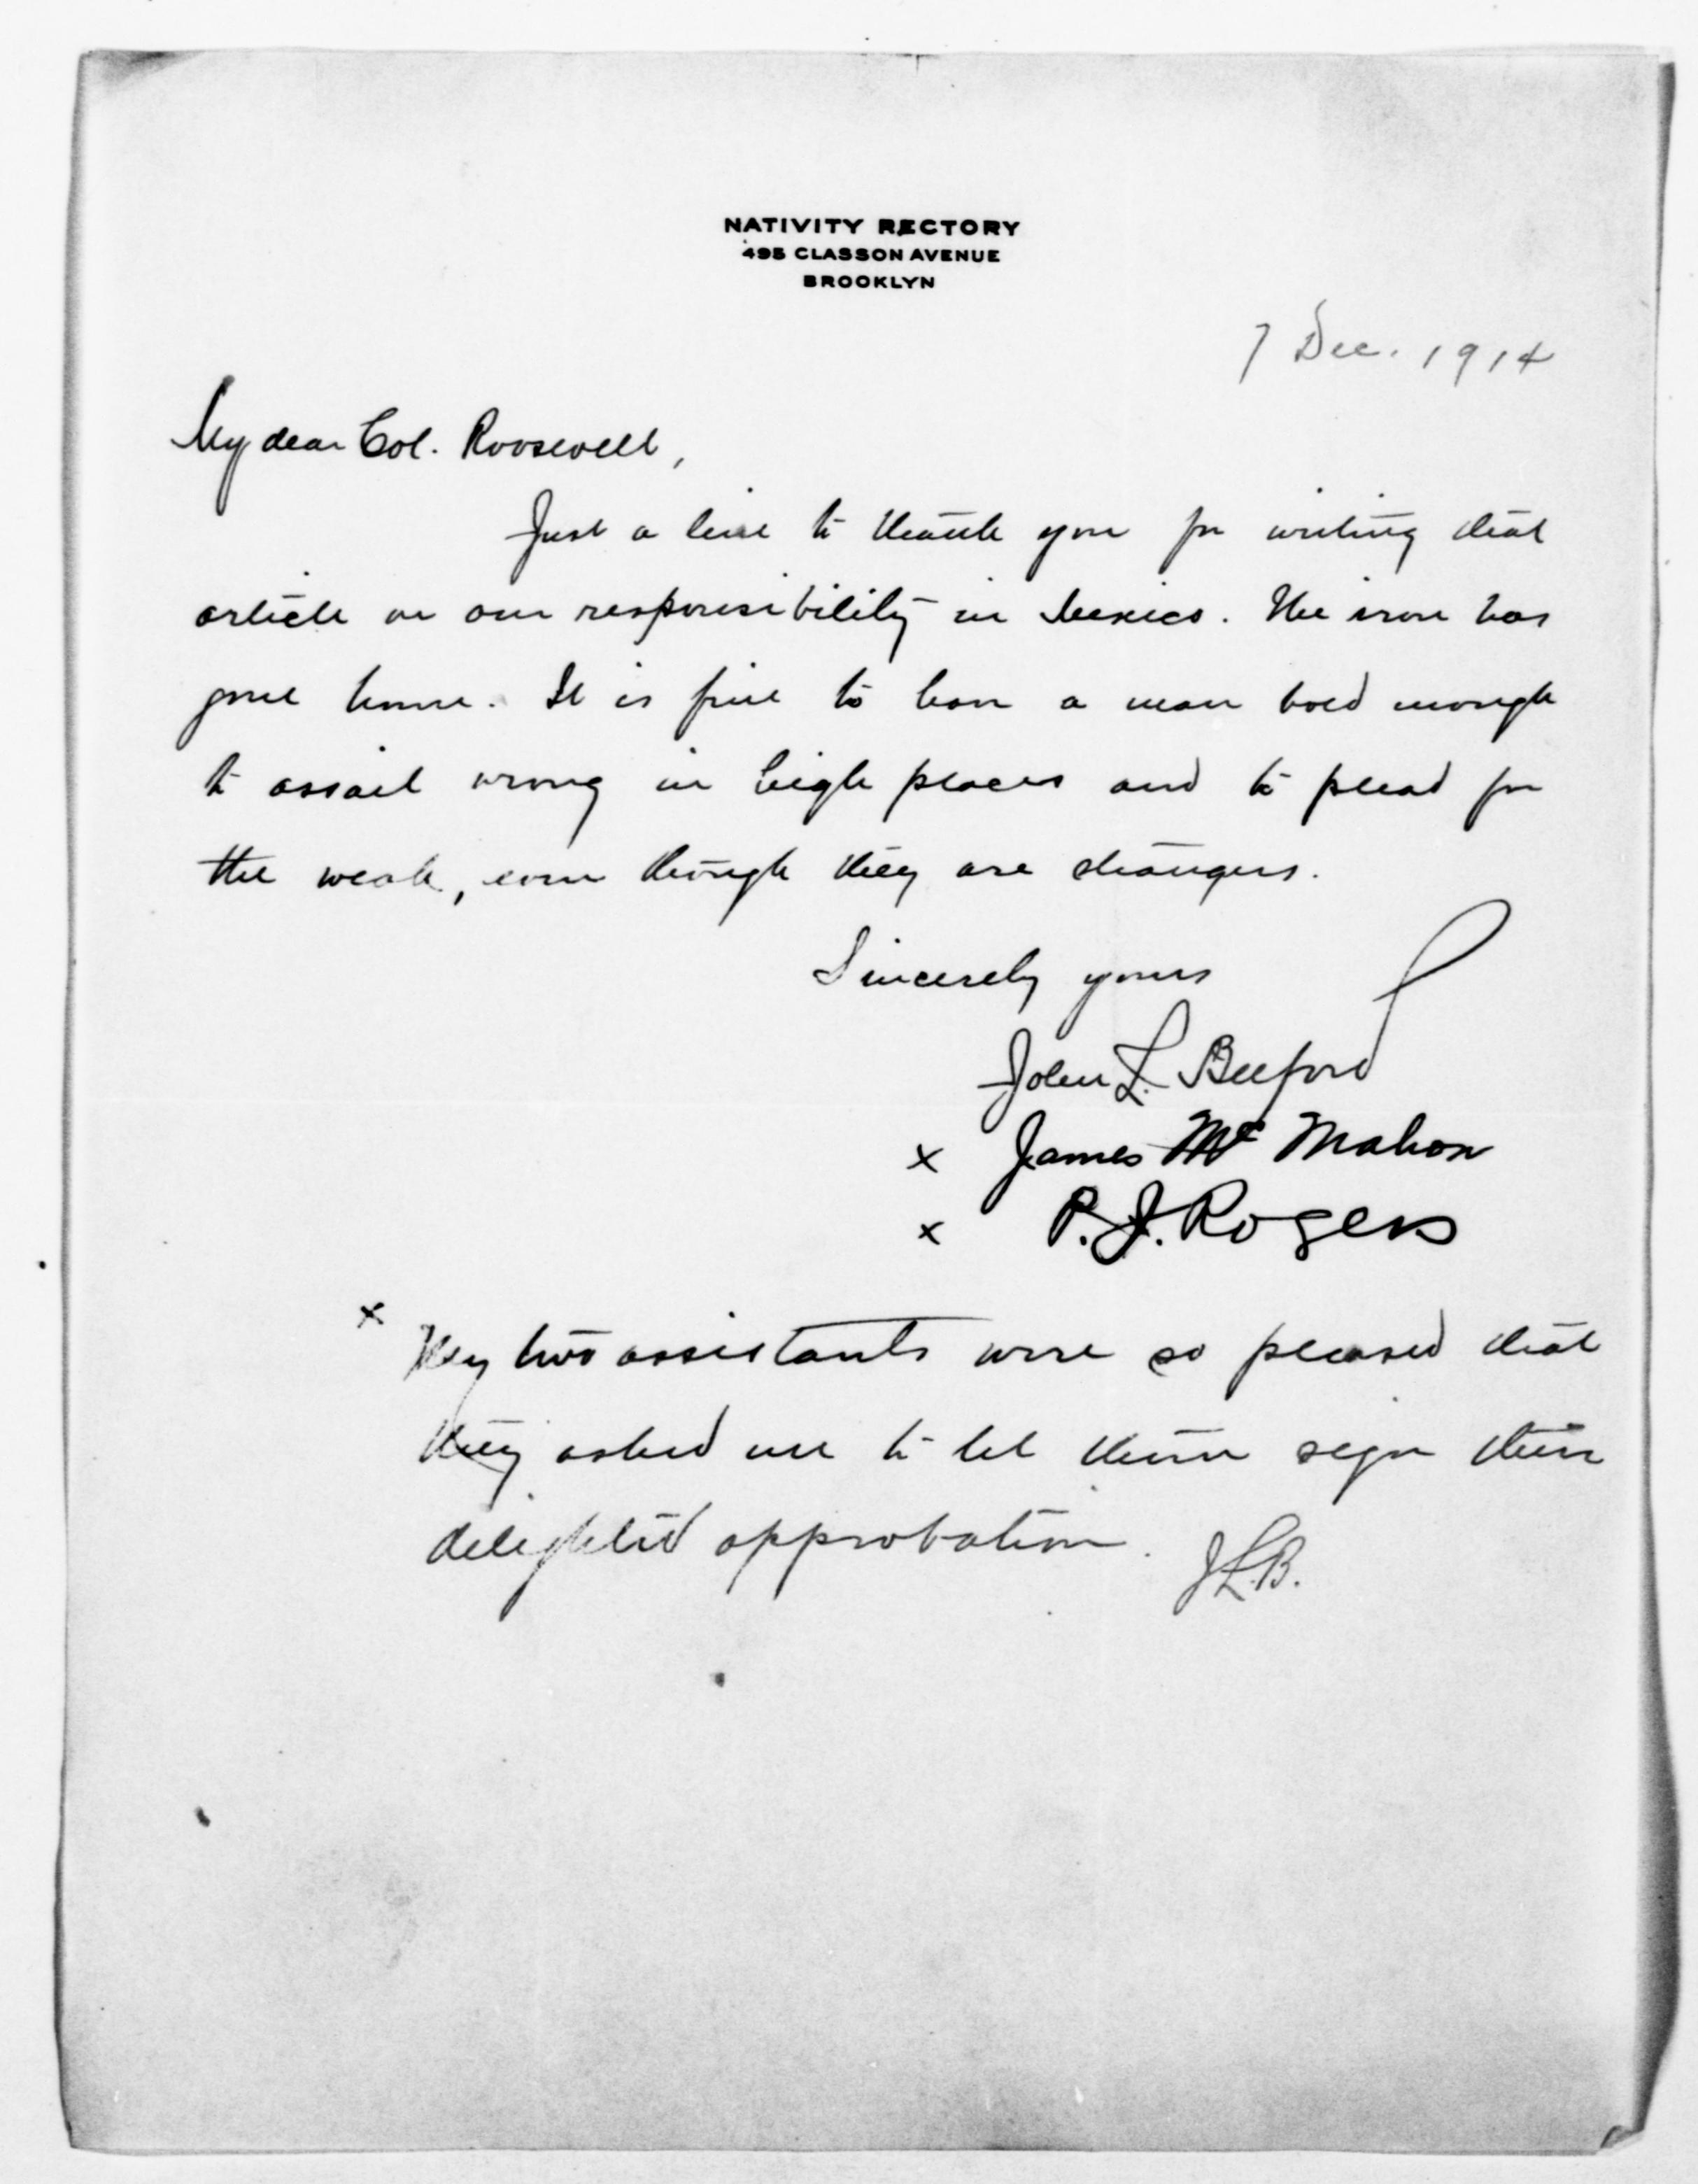 NATIVITY RECTORY
495 CLASSON AVENUE
BROOKLYN
7 Dec. 1914
My dear Col. Roosevelt,
Just a line to thank you for writing that
article on our responsibility in Mexico. The iron has
gone home. It is fine to have a man bold enough
to assail wrong in high places and to plead for
the weak, even though they are strangers.
Sincerely yours
John L. Belford
x James McMahon
x P. J. Rogers
x My two assistants were so pleased that
they asked me to let them sign their
delighted approbation. J.L.B.